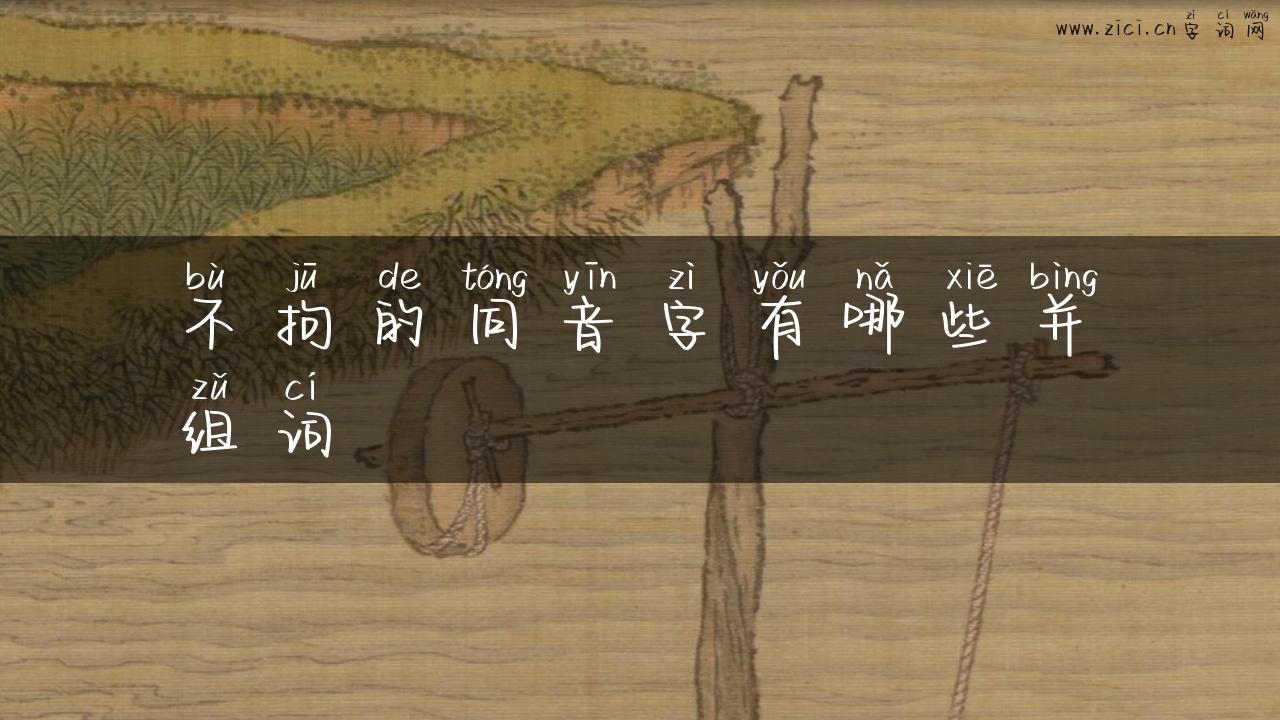 zì cí wǎng
www.zici.cn字词网
bù jū de tóng yīn zì yǒu nǎ xiē bìng
不拘的同音字有哪些并
zǔ cí
组词